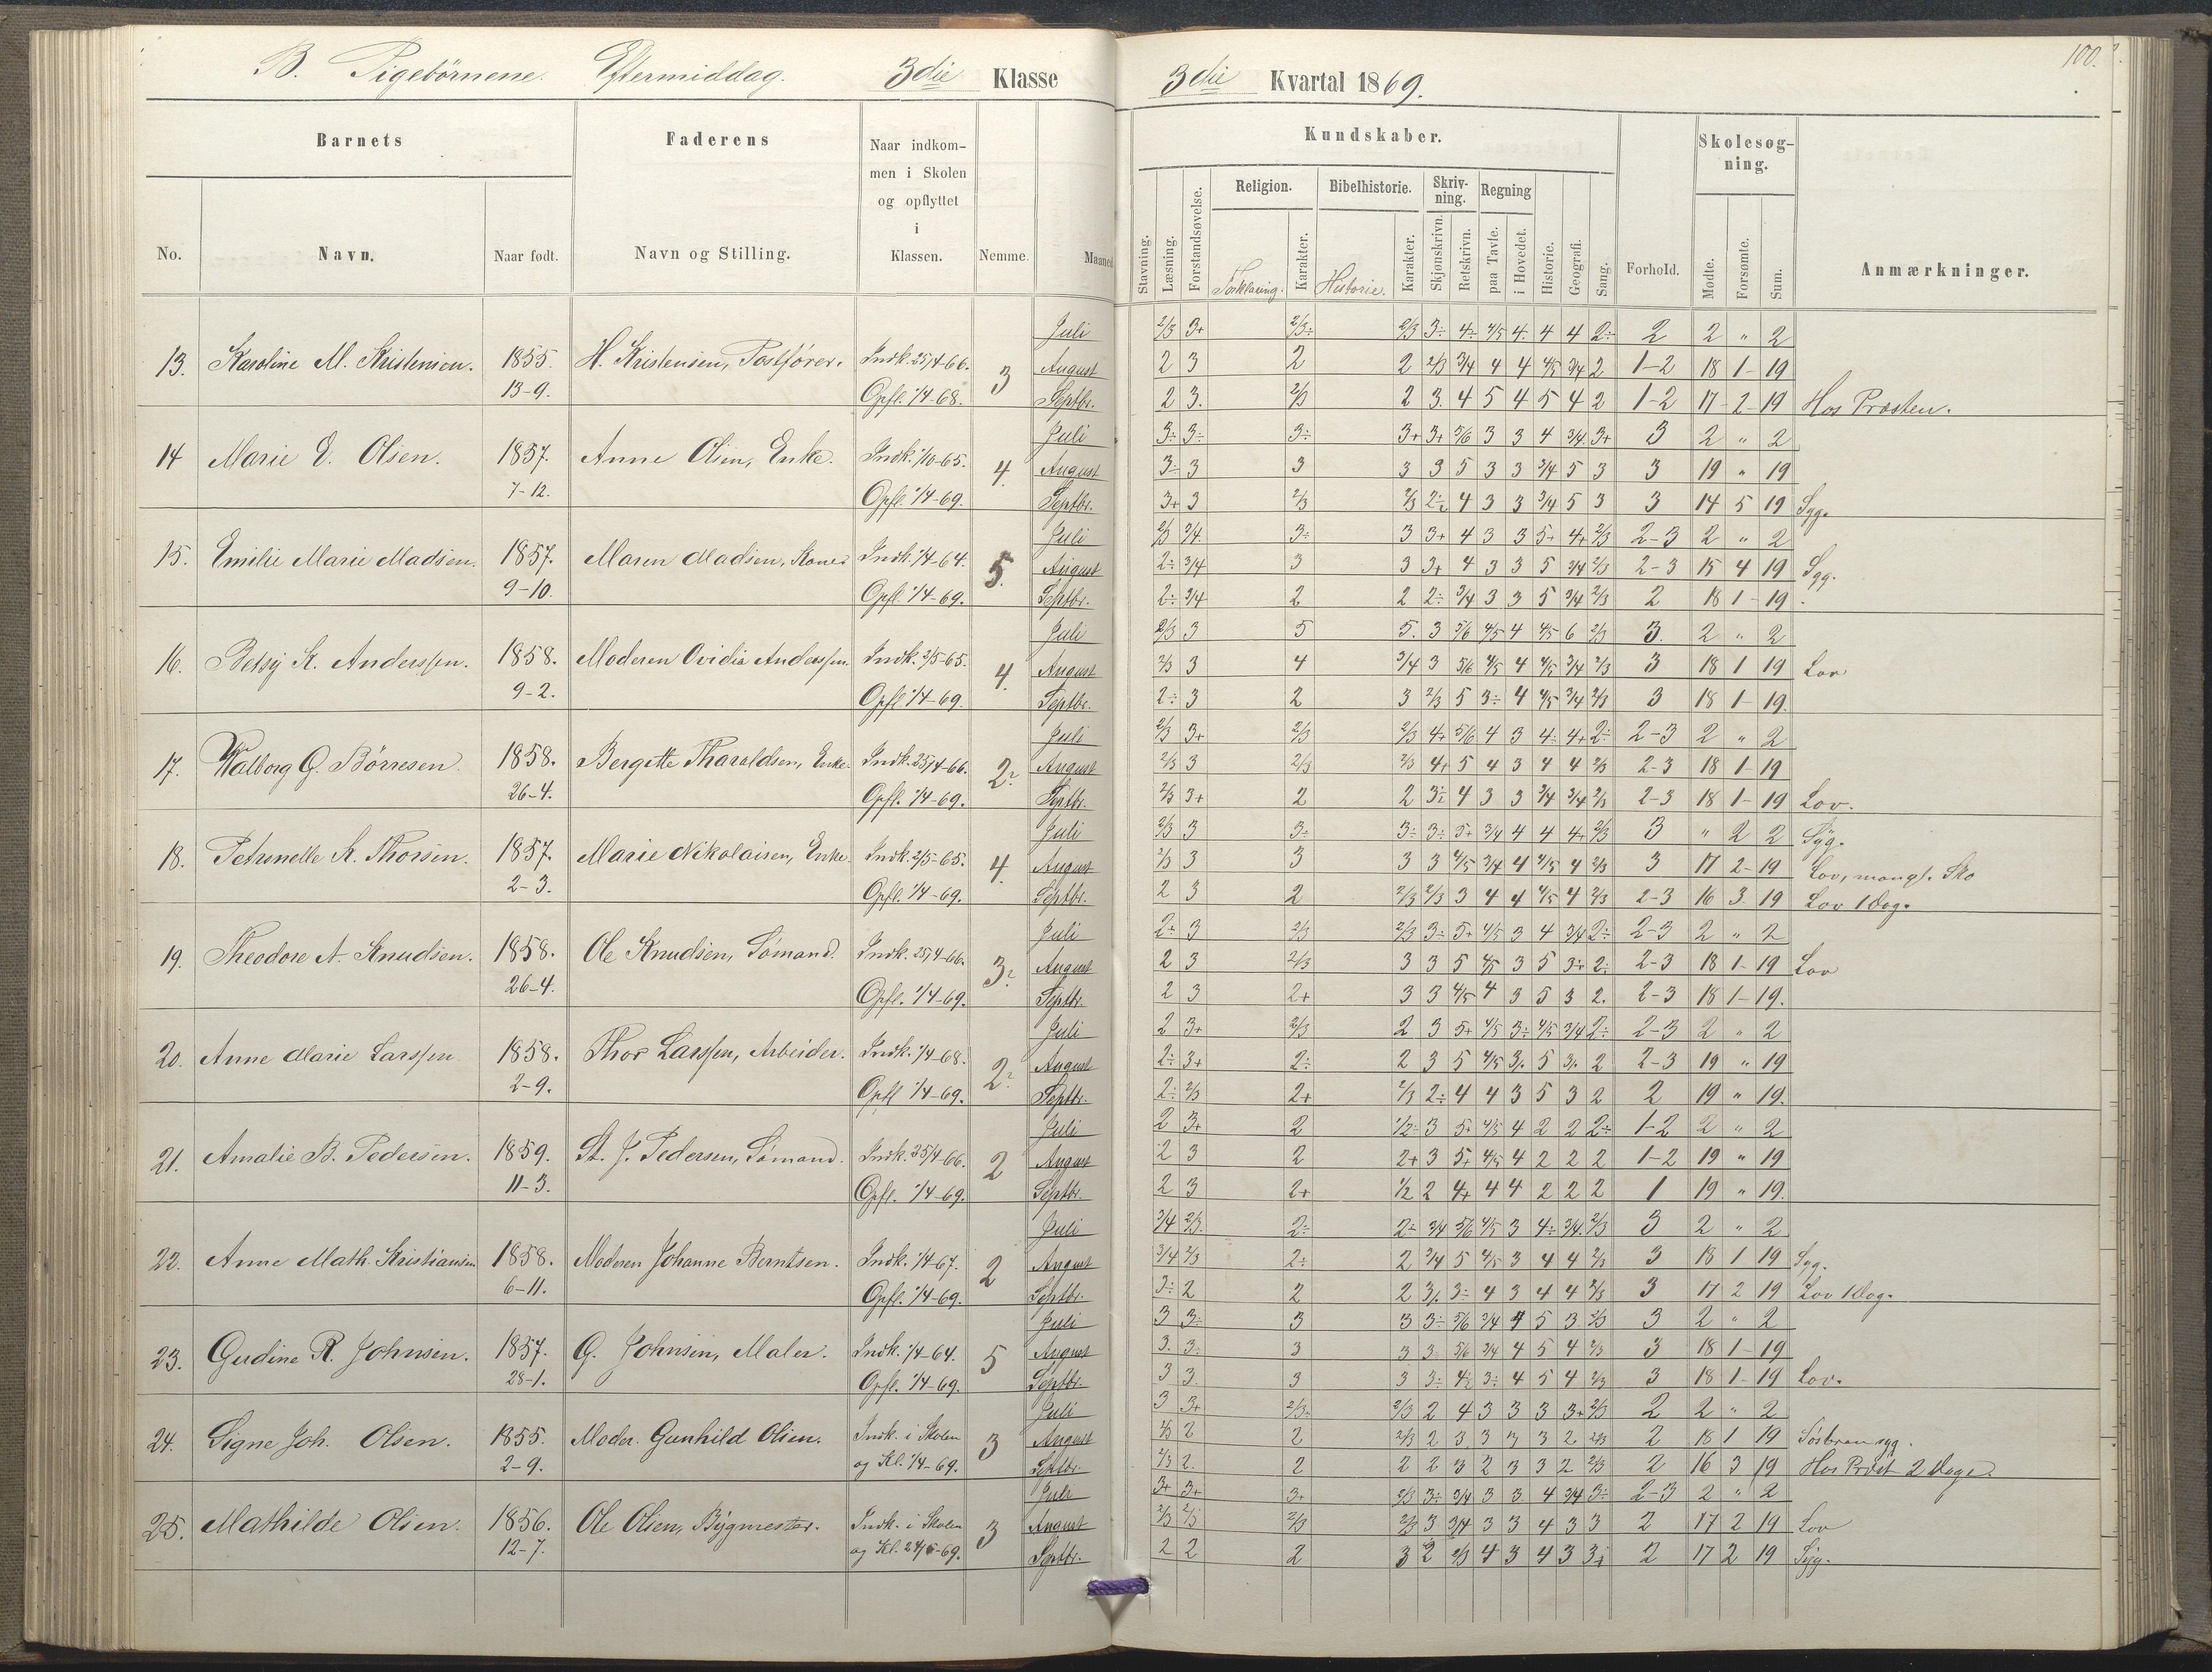 B. Pigebørnene. Eftermiddag. 3die Klasse
3die Kvartal 1869.
100.
Barnets
Faderens
Naar indkom-
men i Skolen
og opflyttet
i
Klassen.
No.
Navn.
Naar født.
Navn og Stilling.
Nemme.
Maaned
Kundskaber.
Skolesøg-
ning.
Stavning.
Læsning.
Forstandsøvelse.
Religion.
Forklaring.
Karakter.
Bibelhistorie.
Historie.
Karakter.
Skriv-
ning.
Skjønskrivn.
Retskrivn.
Regning
paa Tavle.
i Hovedet.
Historie.
Geografi.
Sang.
Forhold.
Mødte.
Forsømte.
Sum.
Anmærkninger.
Juli 2/3 3+ 2/3÷ 2/3 3÷ 4÷ 4/5 4. 4 4 2÷ 2 2 " 2
13. Karoline M. Kristensen. 1855. H. Kristensen, Postfører. Indk. 25/4-66. 3 August 2 3 2 2 2/3 3/4 4 4 4/5 3/4 2 1-2 18 1- 19
13-9. Opfl. 1/4-68. Septbr. 2 3. 2/3 2 3. 4 5 4 5 4 2 1-2 17 2- 19 Hos Præsten.
Juli 3÷ 3÷ 3÷ 3+ 3+ 5/6 3 3 4 3/4. 3+ 3 2 " 2
14 Marie E. Olsen. 1857. Anne Olsen, Enke. Indk. 1/10-65. 4. August 3÷ 3 3 3 3 5 3 3 3/4 5 3 3 19 " 19
7-12. Opfl. 1/4-69. Septbr. 3+ 3 2/3 2/3 2÷ 4 3 3 3/4 5 3 3 14 5 19 Syg.
Juli 2/3 3/4 3÷ 3 3+ 4 3 3 5+ 4+ 2/3 2-3 2 " 2
15. Emilie Marie Madsen. 1857. Maren Madsen, Kone Indk. 1/4-64. 5. August 2÷ 3/4 3 3 3+ 4 3 3 5 3/4 2/3 2-3 15 4 19 Syg.
9-10. Opfl. 1/4-69. Septbr. 2÷ 3/4 2 2 2÷ 3/4 3 3 5 3/4 2/3 2 18 1- 19.
Juli 2/3 3 5 5. 3 5/6 4/5 4 4/5 6 2/3 3. 2 " 2
16. Betsy K. Anderssen. 1858. Moderen Ovidia Anderssen. Indk. 2/5-65. 4. August 2/3 3 4 3/4 3 5/6 4/5 4 4/5 3/4 2/3 3 18 1 19 Lov
9-2. Opfl. 1/4-69. Septbr. 2÷ 3 2 3 2/3 5 3÷ 4 4/5 3/4 2/3 3 18 1- 19.
Juli 2/3 3+ 2/3 2/3 4+ 5/6 4 3 4÷ 4+ 2÷ 2-3 2 " 2
17. Walborg G. Børresen. 1858. Bergitte Tharaldsen, Enke. Indk. 25/4-66. 2÷ August 2/3 3 2/3 2/3 4+ 5 4 3 4 4 2/3 2-3 18 1- 19
26-4. Opfl. 1/4-69. Septbr. 2/3 3+ 2 2 3÷ 4 3 3 3/4 3/4 2/3 2-3 18 1- 19 Lov.
Juli 2/3 3 3÷ 3÷ 3÷ 5+ 3/4 4 4 4+ 2/3 3 " 2 2 Syg.
18. Petrenelle K. Thorsen. 1857. Marie Nikolaisen, Enke. Indk. 2/5-65. 4. August 2/3 3 3 3 3 4/5 3/4 4 4/5 4 2/3 3 17 2- 19 Lov, mangl. Sko
2-3. Opfl. 1/4-69. Septbr. 2 3 2 2/3 2/3 3 4 4 4/5 4 2/3 2-3 16 3. 19 Lov 1 Dag.
Juli 2÷ 3 2/3 2/3 3÷ 5+ 4/5 3 4 3/4 2÷ 2-3 2 " 2
19. Theodore A. Knudsen. 1858. Ole Knudsen, Sømand. Indk. 25/4-66. 3÷ August 2 3 2/3 3 3 5 4/5 3 5 3÷ 2÷ 2-3 18 1- 19 Lov
26-4. Opfl. 1/4-69. Septbr. 2 3 2+ 3 3 4/5 4 3 5 3 2. 2-3 18 1- 19.
Juli 2 3+ 2/3 2 3 5+ 4/5 3÷ 4/5 3/4 2÷ 2-3 2 " 2
20. Anne Marie Larssen 1858. Thor Larssen, Arbeider. Indk. 1/4-68. 2÷ August 2÷ 3+ 2÷ 2 3 5 4/5 3÷ 5 3÷ 2 2-3 19 " 19
2-9. Opfl 1/4-69. Septbr. 2÷ 2/3 2+ 2/3 2÷ 4 4 3 5 3 2 2 19 " 19.
Juli 2 3+ 2 1/2÷ 3 5+ 4/5 4 2 2 2÷ 1-2 2 " 2
21. Amalie B. Pedersen. 1859. St. J. Pedersen, Sømand. Indk. 25/4-66. 2 August 2 3 2 2+ 3 5+ 4/5 4 2 2 2 1-2 19 " 19
11-3. Opfl. 1/4-69. Septbr. 2 3 2+ 1/2 2 4+ 4 4 2 2 2 1 19 " 19.
Juli 3/4 2/3. 2÷ 2÷ 3/4 5/6 4/5 3 4÷ 3/4. 2/3 3 2 " 2
22. Anne Math. Kristiansen 1858. Moderen Johanne Berntsen. Indk. 1/4-67. 2 August 3/4 2/3 2÷ 2 3/4 5 4/5 3 4 4 2/3 3 18 1 19 Syg.
6-11. Opfl. 1/4-69. Septbr. 3÷ 2 2 2 3÷ 3÷ 4 3 4 4 2/3 3 17 2 19 Lov 1 Dag.
Juli 3 3÷ 3 3 3÷ 5/6 3/4 4 5 3. 2/3 3 2 " 2
23. Gudine R. Johnsen. 1857. G. Johnsen, Maler. Indk. 1/4-64. 5 August 3. 3÷ 3 3 3. 5/6 3/4 4 5 4 2/3 3 18 1- 19
28-1. Opfl. 1/4-69. Septbr. 3 3. 3 3 3÷ 4÷ 3÷ 4 5 4 2/3 3 18 1- 19 Lov.
Juli 3 3+ 2/3÷ 2/3 2 4 3 3 3 3+ 2/3 2 2 " 2
24. Signe Joh. Olsen. 1855. Moder. Gunhild Olsen. Indk. i Skolen 3 August 2/3 2 2 2/3 2 3 3 3 3 2 2/3 2 18 1 19 syg.
2-9. og Kl. 1/4-69. Septbr. 2/3 2. 2 2 2 3 2 3 3 2 2/3 2 16 3 19 Hos Præst 2 Dage.
Juli 3+ 3+ 3+ 2/3 3÷ 3/4 3 3. 4 3/4 3÷ 2-3 2 " 2
25. Mathilde Olsen. 1856. Ole Olsen, Bygmester. Indk. i Skolen 3 August 2/3 2/3 2/3 2/3 3 3/4 3 3 4 3 3 2 17 2 19 Lov
12-7. og Kl. 24/5-69. Septbr. 2 2 2 3 2 2/3 4 3 4 3 3+ 2 17 2 19 Syg.